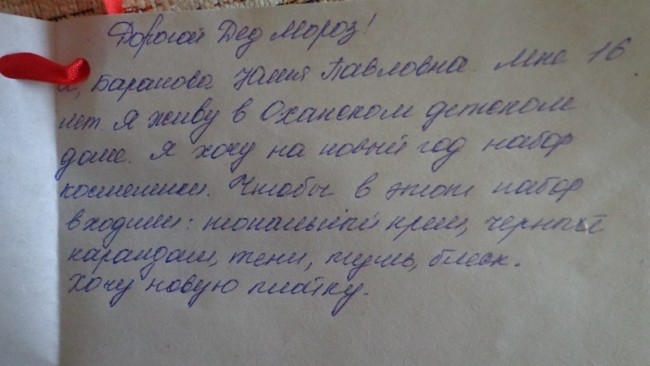 Дорогой Дед Мороз!
Я, Баранова Павловна. Мне 16
лет. Я живу в Оханском детском
доме. Я хочу на новый год набор
косметики. Чтобы в этот набор
входили: тональный крем, черный
карандаш, тени, тушь, блеск.
Хочу новую